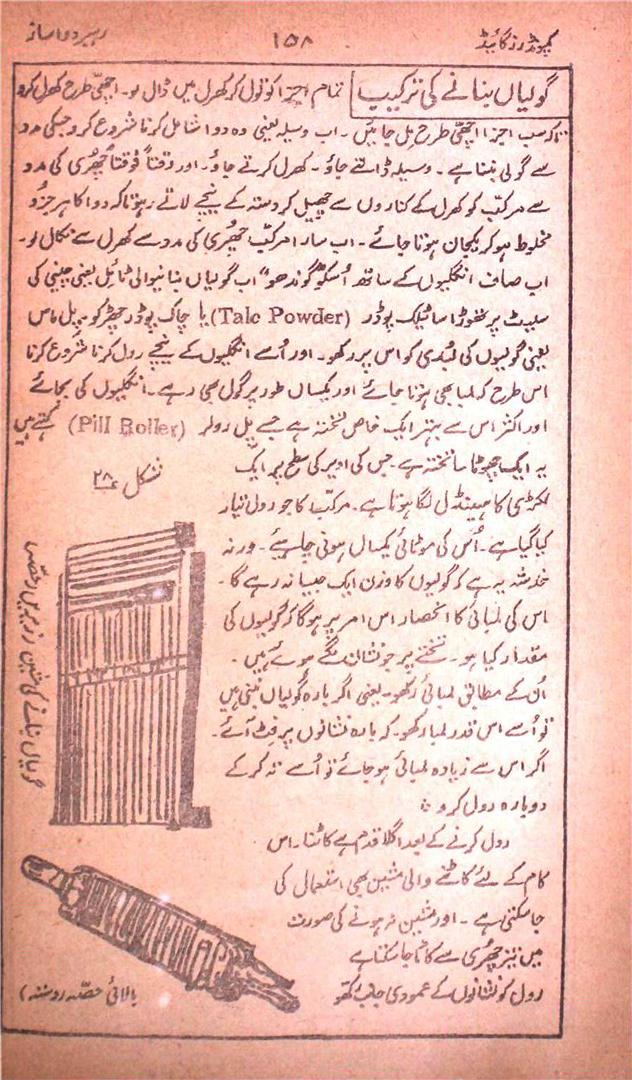 کمپونڈرز گائیڈ ۱۵۸ رہبر دواساز
گولیاں بنانے کی ترکیب تمام اجزا کو تول کر کھرل میں ڈال لو۔ اچھی طرح کھرل کرو
تاکہ سب اجزا اچھی طرح مل جائیں۔ اب وسیلہ یعنی وہ دوا شامل کرنا شروع کرو جسکی مدد
سے گولی بننا ہے۔ وسیلہ ڈالتے جاؤ۔ کھرل کرتے جاؤ۔ اور وقتاً فوقتاً چھری کی مدد
سے مرکب کو کھرل کے کناروں سے چھیل کر دستہ کے نیچے لاتے رہو تاکہ دوا کا ہر جزو
مخلوط ہو کر یکجان ہوتا جائے۔ اب سارا مرکب چھری کی مدد سے کھرل سے نکال لو۔
اب صاف انگلیوں کے ساتھ اُسکو گوندھو۔ اب گولیاں بنانیوالی ٹائیل یعنی چینی کی
سلیٹ پر تھوڑا سا ٹیلک پوڈر (Talc Powder) یا چاک پوڈر چھڑکو۔ پل ماس
یعنی گولیوں کی لُبدی کو اس پر رکھو۔ اور اُسے انگلیوں کے نیچے رول کرنا شروع کرنا
اس طرح کہ لمبا بھی ہوتا جائے اور یکساں طور پر گول بھی رہے۔ انگلیوں کی بجائے
اور اکثر اس سے بہتر ایک خاص تختہ ہے جسے پل رولر (Pill Roller) کہتے ہیں
یہ ایک چھوٹا سا تختہ ہے۔ جس کی اوپر کی سطح پر ایک
شکل ۲۸
لکڑی کا ہینڈل لگا ہوتا ہے۔ مرکب کا جو رول تیار
کیا گیا ہے۔ اُس کی موٹائی یکساں ہونی چاہیے۔ ورنہ
خدشہ یہ ہے کہ گولیوں کا وزن ایک جیسا نہ رہے گا۔
اس کی لمبائی کا انحصار اس امر پر ہوگا کہ گولیوں کی
مقدار کیا ہو۔ تختے پر جو نشان لگے ہوئے ہیں۔
اُن کے مطابق لمبائی رکھو۔ یعنی اگر بارہ گولیاں بننی ہیں
تو اُسے اس قدر لمبا رکھو۔ کہ بارہ نشانوں پر فٹ آئے۔
اگر اس سے زیادہ لمبائی ہو جائے تو اُسے تہ کر کے
دوبارہ رول کرو
رول کرنے کے بعد اگلا قدم ہے کاٹنا۔ اس
کام کے لئے کاٹنے والی مشین بھی استعمال کی
جا سکتی ہے۔ اور مشین نہ ہونے کی صورت
میں تیز چھری سے کاٹا جا سکتا ہے
رول کو نشانوں کے عمودی جانب رکھو
گولیاں بنانے کی مشین زیریں حصّہ
بالائی حصّہ